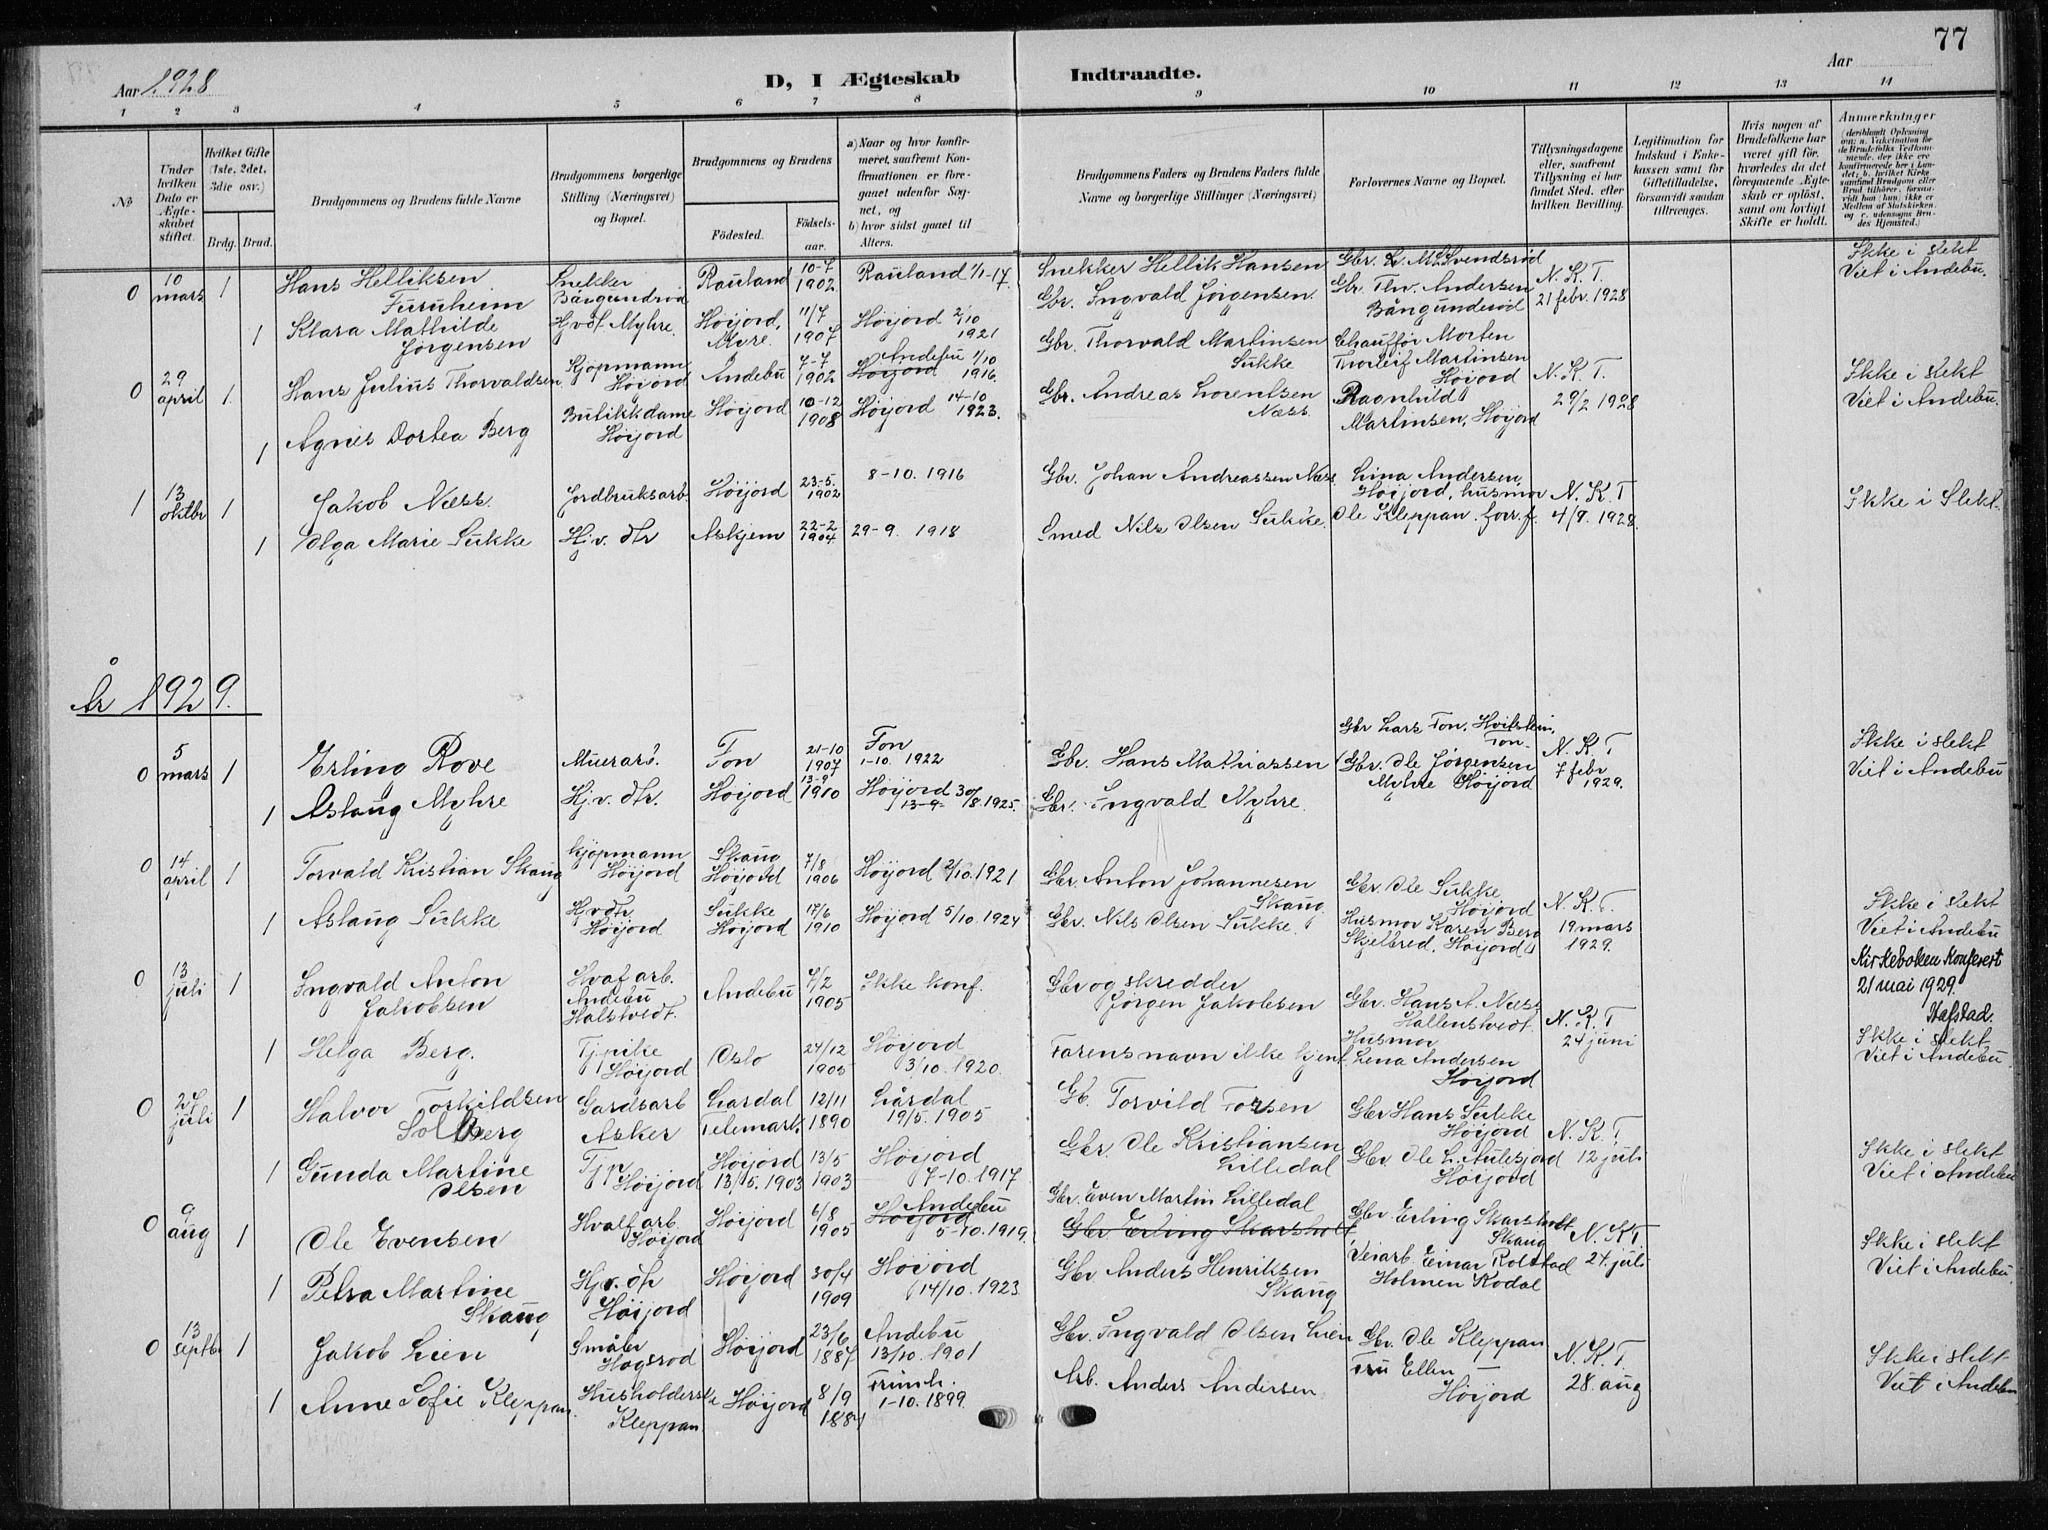 77
Aar 1928
D, I Ægteskab Indtraadte.
Aar
1 2 3 4 5 6 7 8 9 10 11 12 13 14
No
Under hvilken Dato er Ægteskabet stiftet.
Hvilket Gifte (1ste, 2det, 3die osv.)
Brdg. Brud.
Brudgommens og Brudens fulde Navne
Brudgommens borgerlige Stilling (Næringsvei) og Bopæl.
Brudgommens og Brudens
Födested. Födselsaar.
a) Naar og hvor konfirmeret, saafremt Konfirmationen er foregaaet udenfor Sognet, og b) hvor sidst gaaet til Alters.
Brudgommens Faders og Brudens Faders fulde Navne og borgerlige Stillinger (Næringsvei)
Forlovernes Navne og Bopæl.
Tillysningsdagene eller, saafremt Tillysning ei har fundet Sted, efter hvilken Bevilling.
Legitimation for Indskud i Enkekassen samt for Giftetilladelse, forsaavidt saadan tiltrænges.
Hvis nogen af Brudefolkene har været gift för, hvorledes da det foregaaende Ægteskab er oplöst, samt om lovligt Skifte er holdt.
Anmerkninger
0 10 mars 1 Hans Helliksen Furuheim Snekker Bångundrød Rauland 10-7 1902 Rauland 1/1-17. Snekker Hellik Hansen Gbr. L. M. Svendsrød N.K.T. 21 febr. 1928 Ikke i slekt Viet i Andebu.
1 Klara Mathilde Jørgensen Hj.v.dt. Myhre. Høijord, Myre. 11/7 1907 Høijord 2/10 1921 Gbr. Ingvald Jørgensen. Gbr. Thv. Andersen Bångunderød
0 29 april 1 Hans Julius Thorvaldsen Kjøpmann Høijord Andebu 7-7 1902 Andebu Høijord 1/10 1916. Gbr. Thorvald Martinsen Sukke Chauffør Morten Thorleif Martinsen Høijord N.K.T. 29/2 1928 Ikke i slekt Viet i Andebu.
1 Agnes Dortea Berg Butikkdame Høijord Høijord 10-12 1908 Høijord 14-10 1923. Gbr. Andreas Lorentsen Næss Ragnhild Martinsen, Høijord
1 13 oktbr 1 Jakob Næss. Jordbruksarb. Høijord 23-5. 1902 8-10. 1916 Gbr. Johan Andreassen Næss Lina Andersen, Høijord, husmor N.K.T 4/9. 1928. Ikke i Slekt.
1 Olga Marie Sukke Hj.v. dtr Askjem 22-2 1904 29-9. 1918 Smed Nils Olsen Sukke. Ole Kleppan. forr.f.
År 1929.
0 5 mars 1 Erling Rove Murerarb. Fon 21-10 1907 Fon 1-10. 1922 Gbr. Hans Mathiassen Gbr Lars Fon, Hvitstein, Fon. N.K.T 7 febr 1929. Ikke i slekt Viet i Andebu
1 Aslaug Myhre Hj.v. dtr. Høijord 13-9 1910 Høijord 30/8.1925. 13-9- Gbr. Ingvald Myhre. Gbr. Ole Jørgensen Myhre Høijord
0 14 april 1 Torvald Kristian Skaug Kjøpmann Høijord Skaug Høijord 7/8 1906 Høijord 2/10. 1921 Gbr. Anton Johannesen Skaug Gbr. Ole Sukke Høijord N.K.T. 19 mars 1929. Ikke i slekt Viet i Andebu
1 Aslaug Sukke Hj.v.dtr. Høijord Sukke Høijord 17/6 1910 Høijord 5/10. 1924 Gbr. Nils Olsen Sukke. Husmor Karen Berg Skjelbred, Høijord
Kirkeboken Konferert 21 mai 1929. Stafstad.
0 13 juli 1 Ingvald Anton Jakobsen Hvalf arb. Andebu Halstvedt. Andebu 7/2 1905 Ikke konf. Gbr og skredder Jørgen Jakobsen Gbr. Hans A. Næss Hallenstvedt. N.K.T 24 juni Ikke i slekt Viet i Andebu
1 Helga Berg. Tj.pike Høijord Oslo 24/12 1905 Høijord 3/10. 1920. Farens navn ikke kjent. Husmor Lena Andersen Høijord
0 27 juli 1 Halvor Torkildsen Solberg Gardsarb Asker Lardal Telemark 12/11 1890 Lårdal 19/5. 1905 Gb. Torvild Forsen Gbr Hans Sukke Høijord N.K.T 12 juli Ikke i slekt Viet i Andebu
1 Gunda Martine Olsen Tj.p. Høijord Høijord 13/5. 1903 13/5 1903 Høijord 7-10. 1917 Gbr. Ole Kristiansen Lilledal Gbr Ole L. Aulesjord Høijord
0 9 aug 1 Ole Evensen Hvalf arb. Høijord Høijord 6/8 1905 Andebu Høijord 5-10. 1919. Gbr. Even Martin Lilledal Gbr Erling Skarsholt Gbr Erling Skarsholt Skaug N.K.T. 24. juli Ikke i slekt Viet i Andebu
1 Petra Martine Skaug Hj.v. dtr Høijord Høijord 30/4 1909 Høijord 14/10. 1923 Gbr Anders Henriksen Skaug Veiarb. Einar Rolstad Holmen Kodal
0 13 septbr 1 Jakob Lien Småbr Hogsrød Høijord 23/6 1887 Andebu 13/10. 1901 Gbr. Ingvald Olsen Lien Gbr. Ole Kleppan N.K.T. 28. aug Ikke i slekt Viet i Andebu
1 Anne Sofie Kleppan. Husholderske Kleppan. Høijord 8/9 1884 Trømb. 1-10. 1899. Arb. Anders Andersen Fru Ellen — Høijord